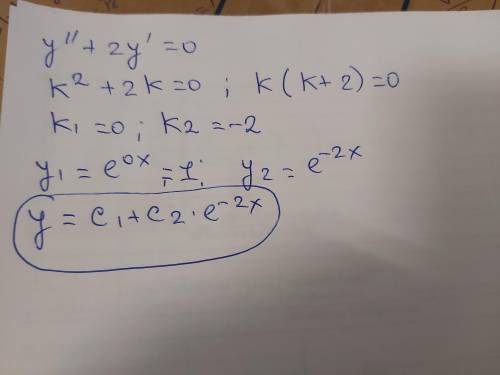 y'' + 2y' = 0
k² + 2k = 0 ; k(k+2) = 0
k₁ = 0 ; k₂ = -2
y₁ = e⁰ˣ = 1; y₂ = e⁻²ˣ
y = c₁ + c₂ · e⁻²ˣ